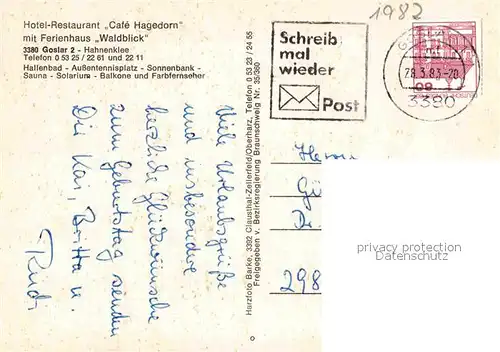 Hotel-Restaurant „Café Hagedorn"
mit Ferienhaus „Waldblick"
3380 Goslar 2 - Hahnenklee
Telefon 0 53 25 / 22 61 und 22 11
Hallenbad - Außentennisplatz - Sonnenbank -
Sauna - Solarium - Balkone und Farbfernseher
Viele Urlaubsgrüße
und insbesondere
herzliche Glückwünsche
zum Geburtstag senden
Die Kai, Britta u.
Rudi
Harzfoto Barke, 3392 Clausthal-Zellerfeld/Oberharz, Telefon 0 53 23 / 24 55
Freigegeben v. Bezirksregierung Braunschweig Nr. 35/360
1982
Schreib
mal
wieder
Post
28.3.83-20
09
3380
Herrn
298
privacy protection
Datenschutz